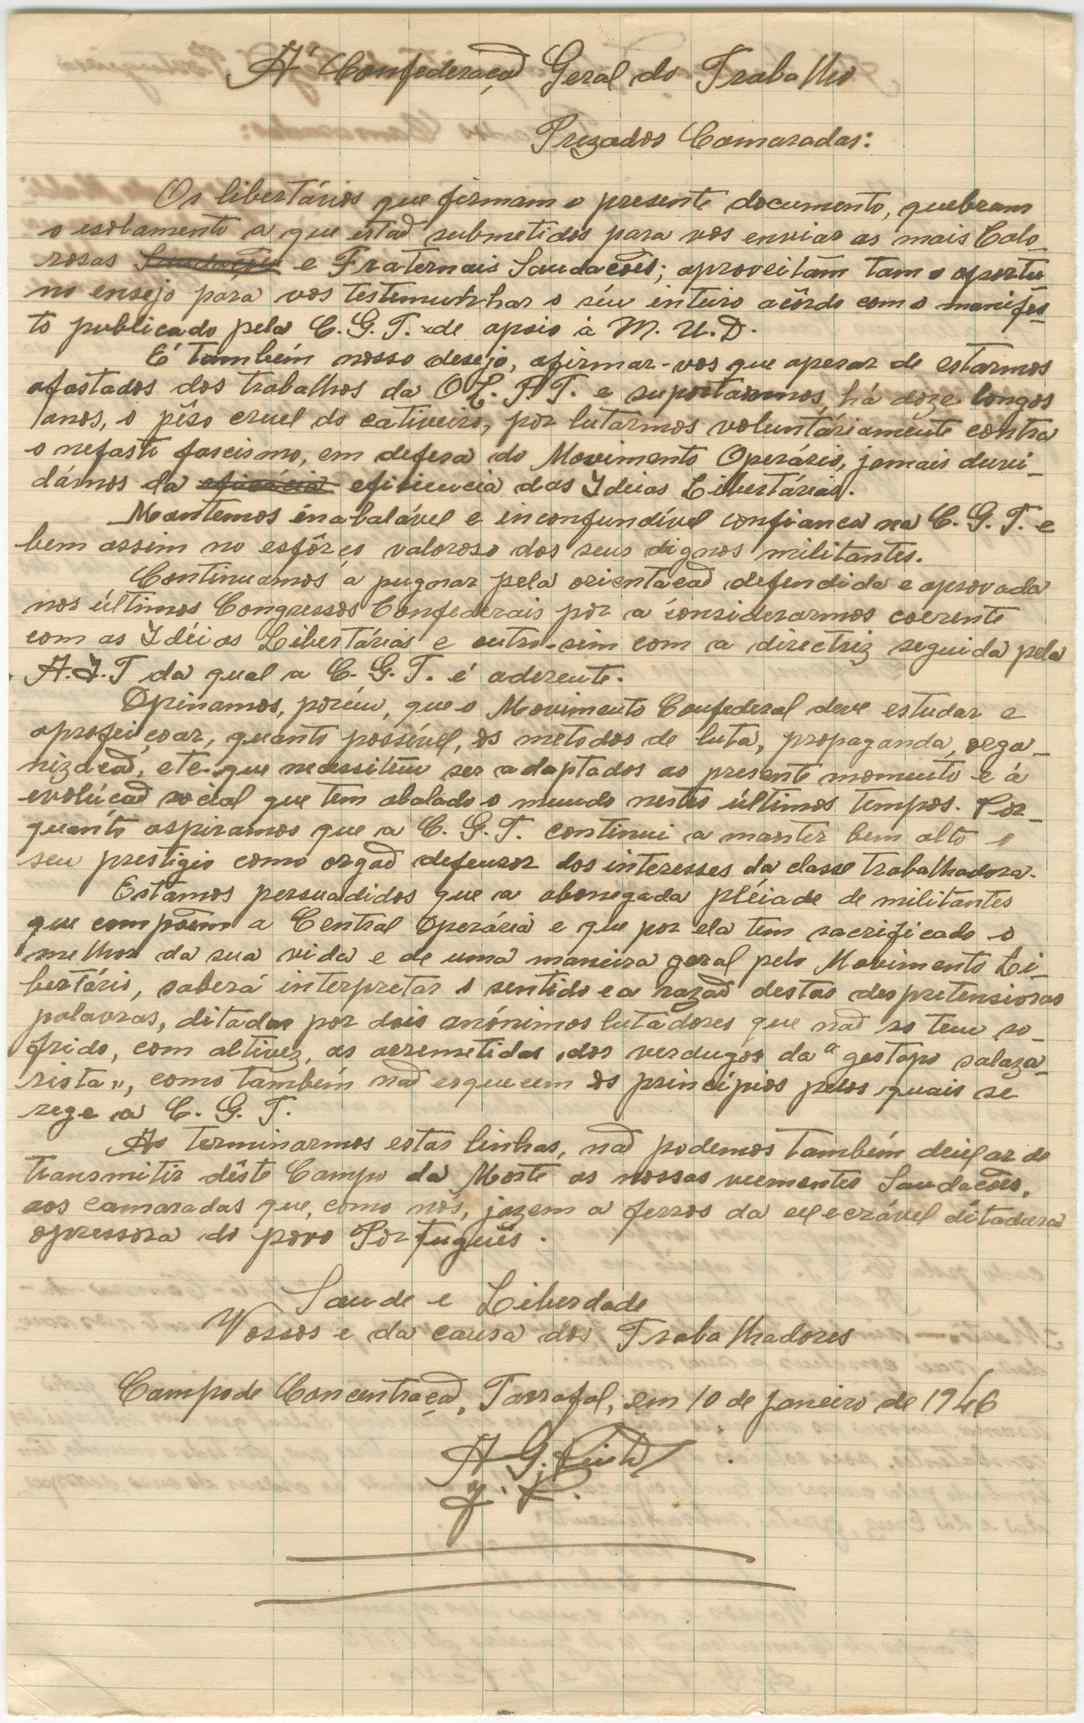 A' Confederação Geral do Trabalho
Prezados Camaradas:
Os libertários que firmam o presente documento, quebram
o isolamento a que estão submetidos para vos enviar as mais Calo
rosas e Fraternais Saudações; aproveitam tam o oportu
no ensejo para vos testemunhar o seu inteiro acôrdo com o manifes-
to publicado pela C. G. T. de apoio à M. U. D.
E' também nosso desejo, afirmar-vos que apesar de estarmos
afastados dos trabalhos da O. L. P. T. e suportarmos, há doze longos
anos, o pêso cruel do cativeiro, por lutarmos voluntáriamente contra
o nefasto fascismo, em defesa do Movimento Operário, jamais duvi-
dámos da eficiencia das Ideas Libertárias.
Mantemos inabalável e inconfundível confiança na C. G. T. e
bem assim no esfôrço valoroso dos seus dignos militantes.
Continuamos a pugnar pela orientação defendida e aprovada
nos últimos Congressos Confederais por a considerarmos coerente
com as Idéias Libertárias e outro-sim com a directriz seguida pela
A. I. T da qual a C. G. T. é aderente.
Opinamos, porém, que o Movimento Confederal deve estudar e
aproveitar, quanto possível, os metodos de luta, propaganda, orga-
nização, etc. que necessitem ser adaptados ao presente momento e á
evolução social que tem abalado o mundo nestes últimos tempos. Por-
quanto aspiramos que a C. G. T. continui a manter bem alto o
seu prestigio como orgão defensor dos interesses da classe trabalhadora.
Estamos persuadidos que a abnegada pléiade de militantes
que compõem a Central Operária e que por ela tem sacrificado o
melhor da sua vida e de uma maneira geral pelo Movimento Li-
bertário, saberá interpretar o sentido e a razão destas despretensiosas
palavras, ditadas por dois anónimos lutadores que não so tem so
frido, com altivez, as arremetidas dos verdugos da "gestapo salaza-
rista", como também não esquecem os princípios pelos quais se
rege a C. G. T.
Ao terminarmos estas linhas, não podemos também deixar de
transmitir dêste Campo da Morte as nossas veementes Saudações,
aos camaradas que, como nós, jazem a ferros da execrável ditadura
opressora do povo Português.
Saude e Liberdade
Vossos e da causa dos Trabalhadores
Campo de Concentração, Tarrafal, em 10 de Janeiro de 1946
A G.
J. R.